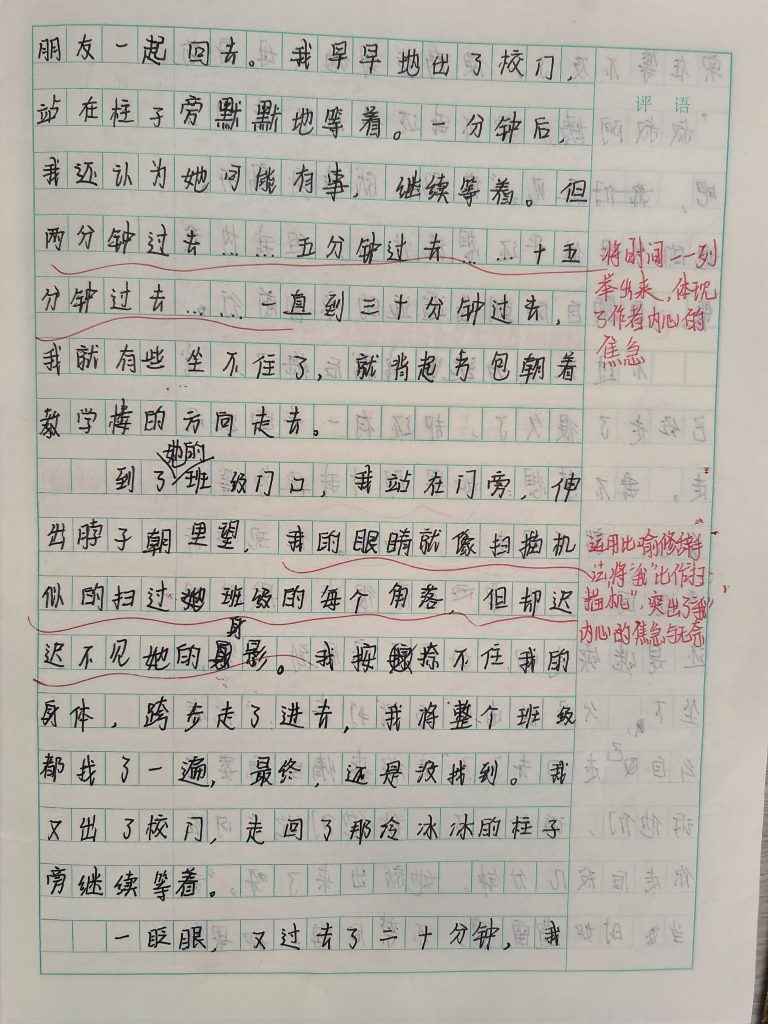 朋友一起回去。我早早地出了校门，
站在柱子旁默默地等着。一分钟后，
我还认为她可能有事，继续等着。但
两分钟过去……五分钟过去……十五
分钟过去……一直到三十分钟过去，
我就有些坐不住了，就背起书包朝着
教学楼的方向走去。
到了她的班级门口，我站在门旁，伸
出脖子朝里望，我的眼睛就像扫描机
似的扫过班级的每个角落，但却迟
迟不见她的身影。我按捺不住我的
身体，跨步走了进去，我将整个班级
都找了一遍，最终，还是没找到。我
又出了校门，走回了那冷冰冰的柱子
旁继续等着。
一眨眼，又过去了二十分钟，我
评语
将时间一一列
举出来，体现
了作者内心的
焦急
运用比喻修辞手
法，将"我"比作扫
描机"，突出了"我"
内心的焦急与无奈